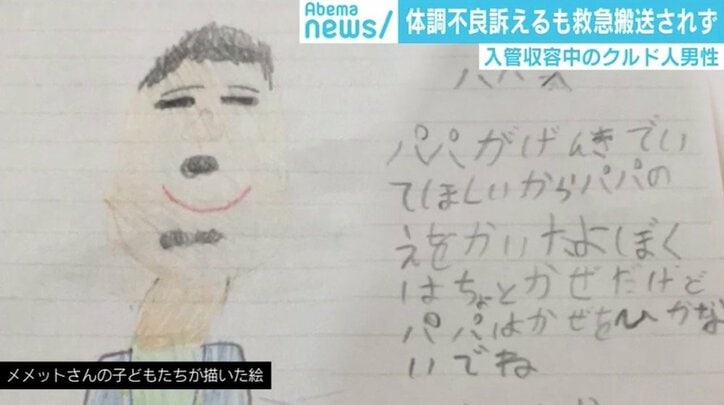 Abema
news/
体調不良訴えるも救急搬送されず
入管収容中のクルド人男性
パパがげんきでい
てほしいからパパの
えをかいたよぼく
はちょとかぜだけど
パパはかぜをひかな
いでね
メメットさんの子どもたちが描いた絵